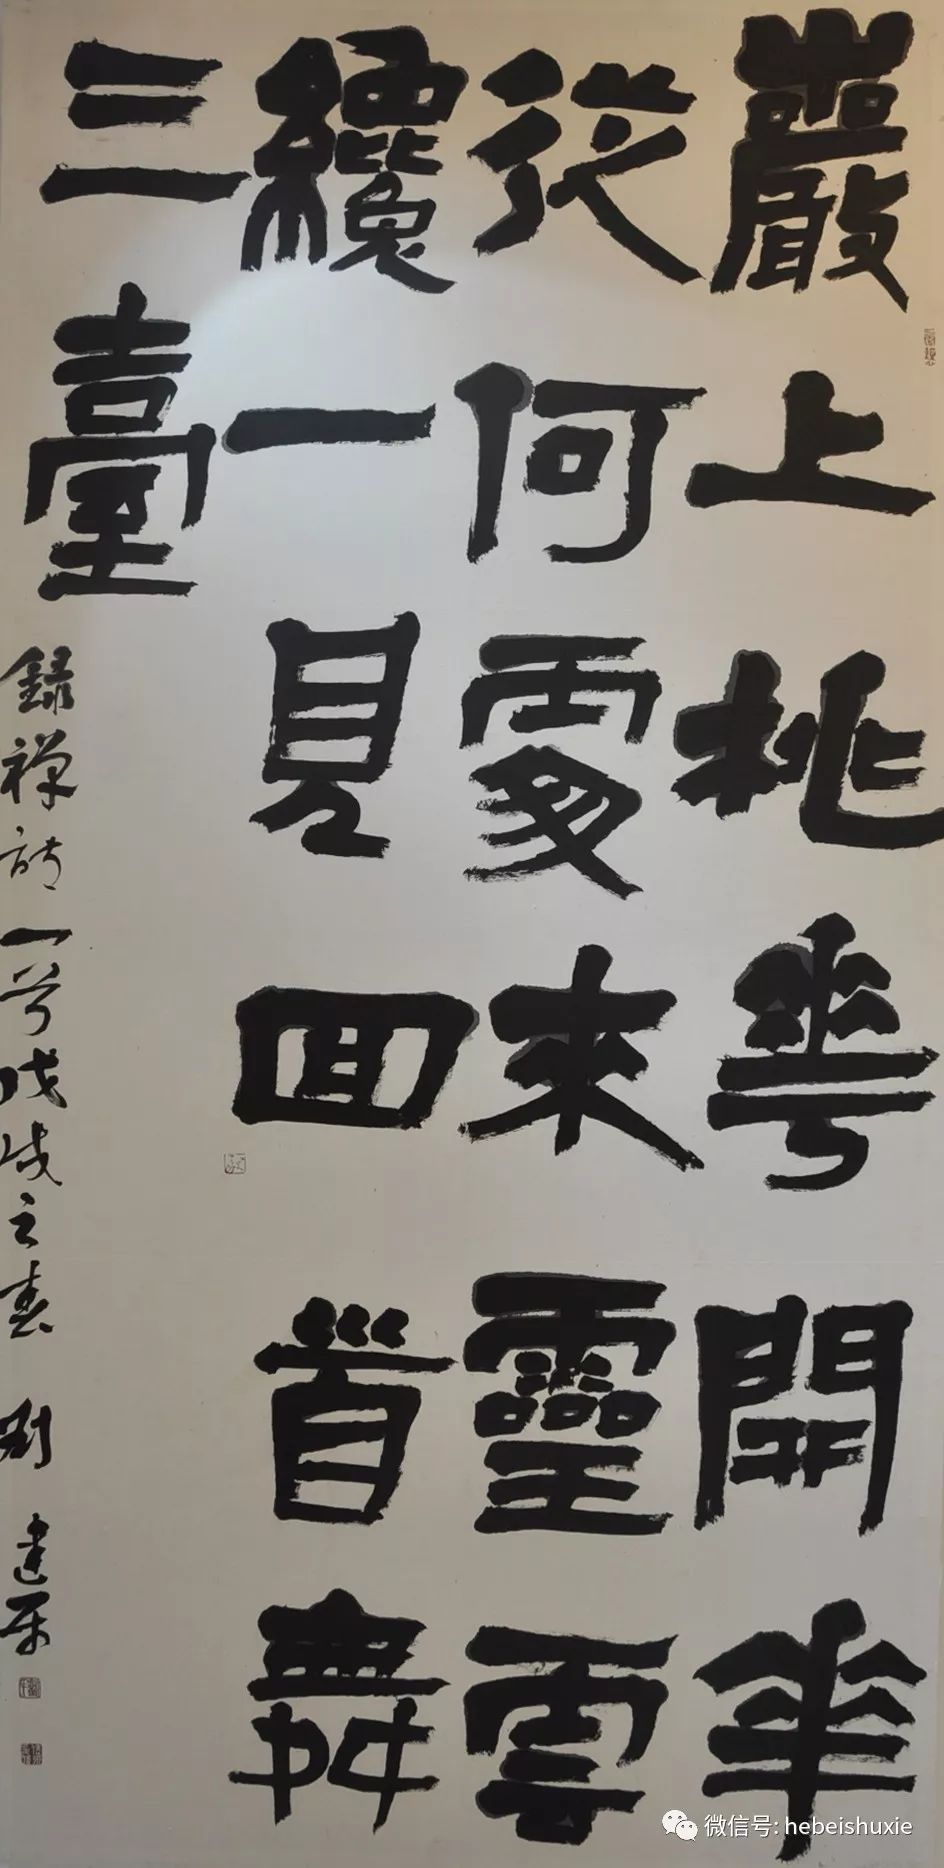 巖上桃華開華
從何處來靈雲
纔一見回首舞
三臺
錄禪詩一首戊戌之春 劉建平
微信号: hebeishuxie